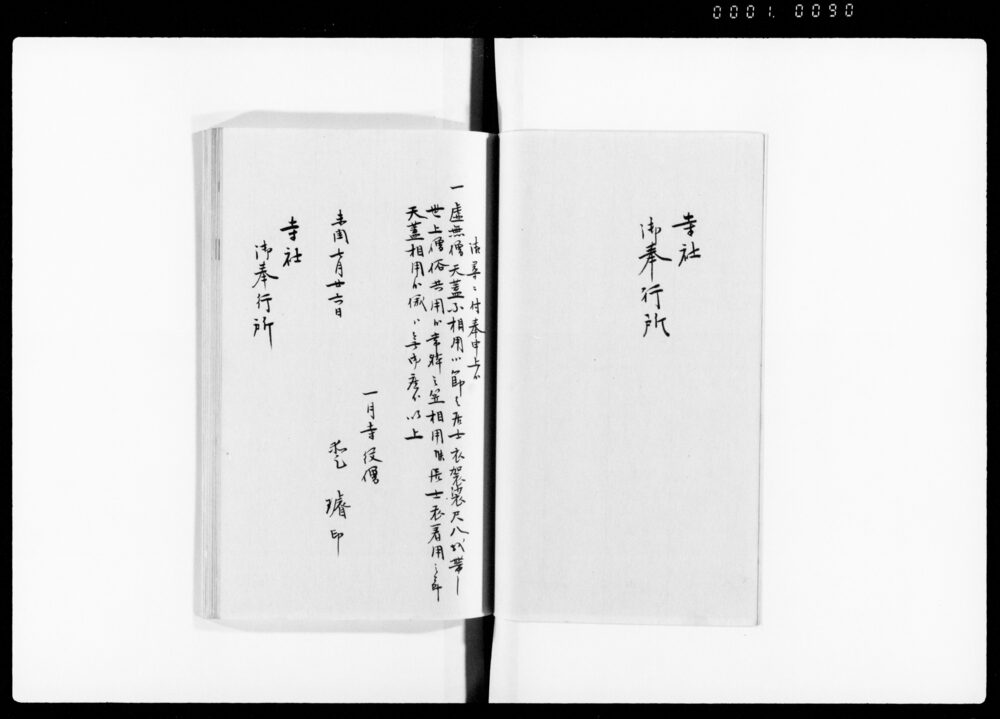 0001 0090
寺社
御奉行所
御尋ニ付奉申上候
一 虚無僧天蓋不相用候節ハ居士衣袈裟尺八致帯し
世上僧俗共用候常躰之笠相用候居士衣着用之節
天蓋相用候儀ハ無御座候以上
未閏七月廿六日
一月寺役僧
璿印
寺社
御奉行所